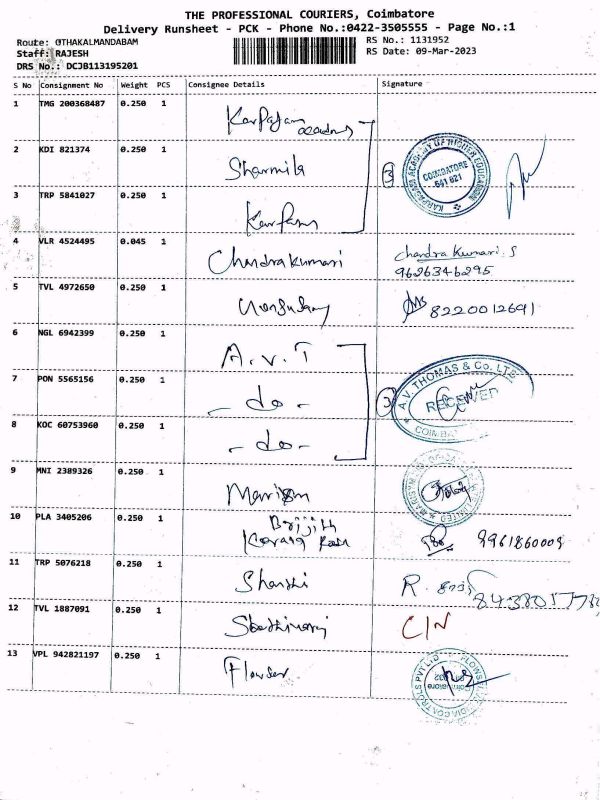 THE PROFESSIONAL COURIERS, Coimbatore
Delivery Runsheet - PCK - Phone No.:0422-3505555 - Page No.:1
Route: OTHAKALMANDABAM
RS No.: 1131952
Staff: RAJESH
RS Date: 09-Mar-2023
DRS No.: DCJB113195201
S No Consignment No Weight PCS Consignee Details Signature
1 TMG 200368487 0.250 1 Karpagam
2 KDI 821374 0.250 1 Sharmila
KARPAGAM ACADEMY OF HIGHER EDUCATION
COIMBATORE
641 021
3
3 TRP 5841027 0.250 1 Karpam
4 VLR 4524495 0.045 1 Chandrakumari Chandra Kumari.S
9626346295
5 TVL 4972650 0.250 1 8220012691
6 NGL 6942399 0.250 1 A.V.T
7 PON 5565156 0.250 1 - do - 3
A.V. THOMAS & Co. LTD.
RECEIVED
8 KOC 60753960 0.250 1 - do -
9 MNI 2389326 0.250 1
10 PLA 3405206 0.250 1 Brijith
9961860009
11 TRP 5076218 0.250 1 Shanthi R.
12 TVL 1887091 0.250 1 C/N
13 VPL 942821197 0.250 1 Flowser